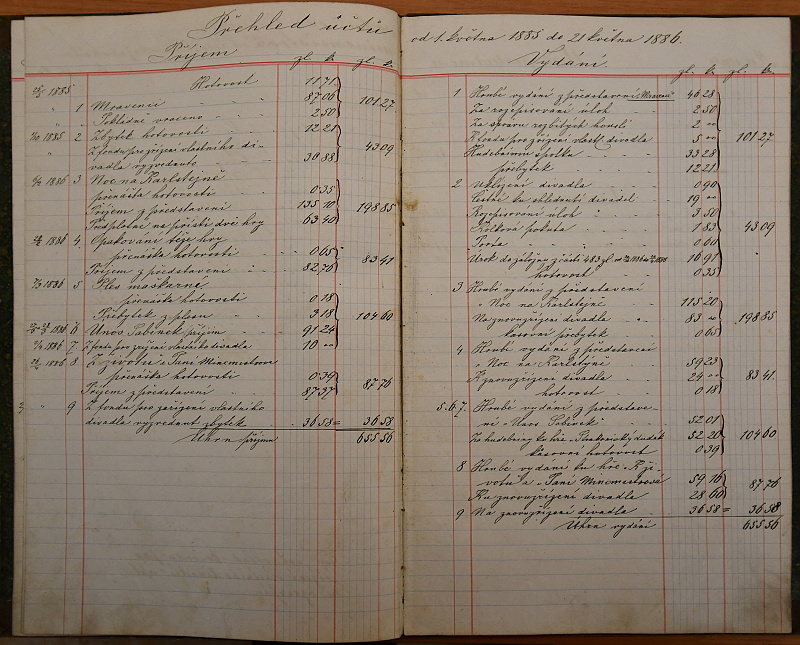 Přehled účtů
Příjem
zl. k. zl. k.
25/5 1885 Hotovost 11 71
" 1 Mravenci 87 06 101 27
" Pokladní vráceno 2 50
1885 2 Zbytek hotovosti 12 21
" Z fondu pro zřízení vlastního di- 43 09
vadla vyzvednuto 30 88
1886 3 Noc na Karlštejně
přenáška hotovosti 0 35
Příjem z představení 135 10 198 85
Předplatné na příští dvě hry 63 40
1886 4. Opakování téže hry
přenáška hotovosti 0 65
Příjem z představení 82 76 83 41
1886 5 Ples maškarní
přenáška hotovosti 0 18
Přebytek z plesu 3 18 104 60
1886 6 Únos Sabinek příjem 91 24
1886 7 Z fondu pro zřízení vlastního divadla 10 "
1886 8 Z života a Paní Mincmistrová
přenáška hotovosti 0 39
Příjem z představení 87 37 87 76
" 9 Z fondu pro zařízení vlastního
divadla vyzvednut zbytek 36 58 = 36 58
Úhrn příjmu 655 56
od 1. května 1885 do 21 května 1886.
Vydání
zl. k. zl. k.
1 Hrubé vydání z představení "Mravenci" 46 28
Za rozepisování úloh 2 50
Za správu rozbitých houslí 2 "
K fondu pro zřízení vlast. divadla 5 " 101 27
Hudebnímu spolku 33 28
přebytek 12 21
2 Uklízení divadla 0 90
Cestné ku shlédnutí divadel 19 "
Rozepisování úloh 3 50
Kolková pokuta 1 83 43 09
Porta 0 60
Úrok do záložny z části 483 zl. 16 91
hotovost 0 35
3 Hrubé vydání z představení
"Noc na Karlštejně 115 20
Na znovuzřízení divadla 83 " 198 85
kasovní přebytek 0 65
4 Hrubé vydání z představení
"Noc na Karlštejně 59 23
K znovuzřízení divadla 24 " 83 41
hotovost 0 18
5. 6. 7. Hrubé vydání z představe-
ní "Únos Sabinek" 52 01
Za hudebniny ku hře "Strakonický dudák 52 20 104 60
kasovní hotovost 0 39
8 Hrubé vydání ku hře "Z ži-
votu a "Paní Mincmistrová 59 16 87 76
Ku znovuzřízení divadla 28 60
9 Na znovuzřízení divadla 36 58 = 36 58
Úhrn vydání 655 56